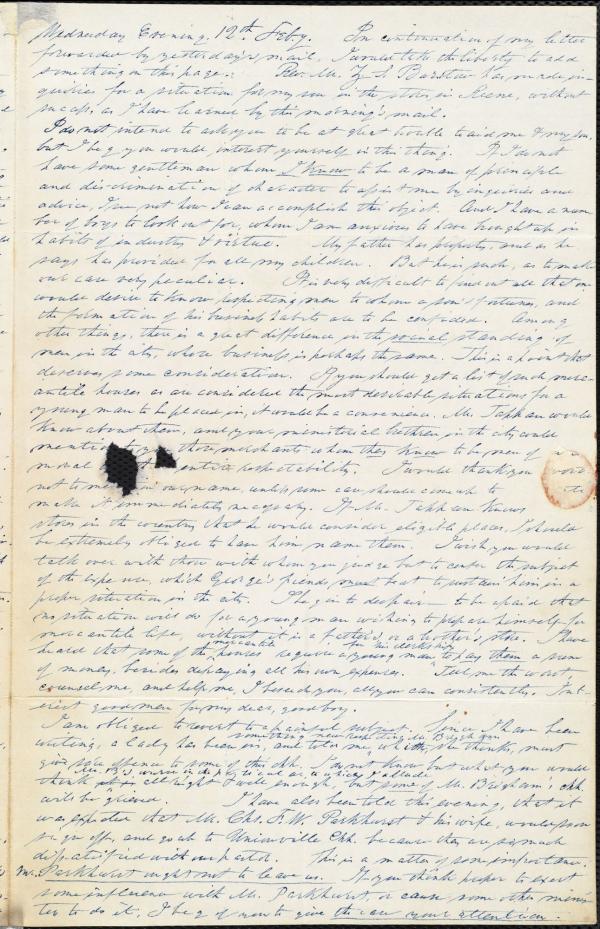 Wednesday Evening, 12th Feby. In continuation of my letter
forwarded by yesterday's mail, I would take the liberty to add
something on this page.: Rev. Mr. Z. S. Barstow has made in-
quiries for a situation for my son in the stores in Keene, without
success, as I have learned by this morning's mail.
I do not intend to ask you to be at great trouble to aid me & my son,
but I beg you would interest yourself in this thing. If I do not
have some gentleman whom I know to be a man of principle
and discrimination of character to assist me by inquiries and
advice, I see not how I can accomplish this object. And I have a num
ber of boys to look out for, whom I am anxious to have brought up in
habits of industry & virtue. My father has property, and as he
says has provided for all my children. But he is such, as to make
our case very peculiar. It is very difficult to find out all that one
would desire to know respecting men to whom a son's fortunes, and
the formation of his business habits are to be confided. Among
other things, there is a great difference in the social standing of
men in the city, whose business is perhaps the same. This is a point that
deserves some consideration. If you should get a list of such merc-
antile houses as are considered the most desirable situations for a
young man to be placed in, it would be a convenience. Mr. Tappan would
know about them, and your ministerial brethren in the city could
mention to you those merchants whom they know to be men of
moral entire respectability. I would thank you
not to mention our name, unless some case should come up to
make it immediately necessary. If Mr. Tappan knows
stores in the country that he would consider eligible places, I should
be extremely obliged to have him name them. I wish you would
talk over with those with whom you judge best to confer the subject
of the expense, which George's friends must be at to sustain him in a
proper situation in the city. I begin to despair — to be afraid that
no situation will do for a young man wishing to prepare himself for
mercantile life, without it is a father's, or a brother's store. I have
heard that some of the mercantile houses require a young man for his clerkship to pay them a sum
of money, besides defraying all his own expenses. Tell me the worst
counsel me, and help me, I beseech you, all you can consistently. Int-
erest good men for my dear, good boy.
I am obliged to revert to a painful subject. Since I have been
writing, a lady has been in, and told me something new respecting Mr. Brigham which, she thinks, must
give sore offence to some of this chh. I do not know but what you would
think Mr. B's course in the way to act as, to which I allude all right & well enough, but some of Mr. Brigham's chh.
will be grieved. I have also been told this evening, that it
was expected that Mr. Chs. F. W. Parkhurst & his wife, would soon
sign off, and go up to Unionville Chh. because they are so much
dissatisfied with our pastor. This is a matter of some importance.
Mr. Parkhurst ought not to leave us. If you think proper to exert
some influence with Mr. Parkhurst, or cause some other minis
ter to do it, I beg of you to give the case your attention.